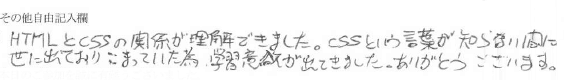 その他自由記入欄
HTMLとCSSの関係が理解できました。CSSという言葉が知らない間に
世に出ており こまっていた為、学習意欲が出てきました。ありがとうございます。